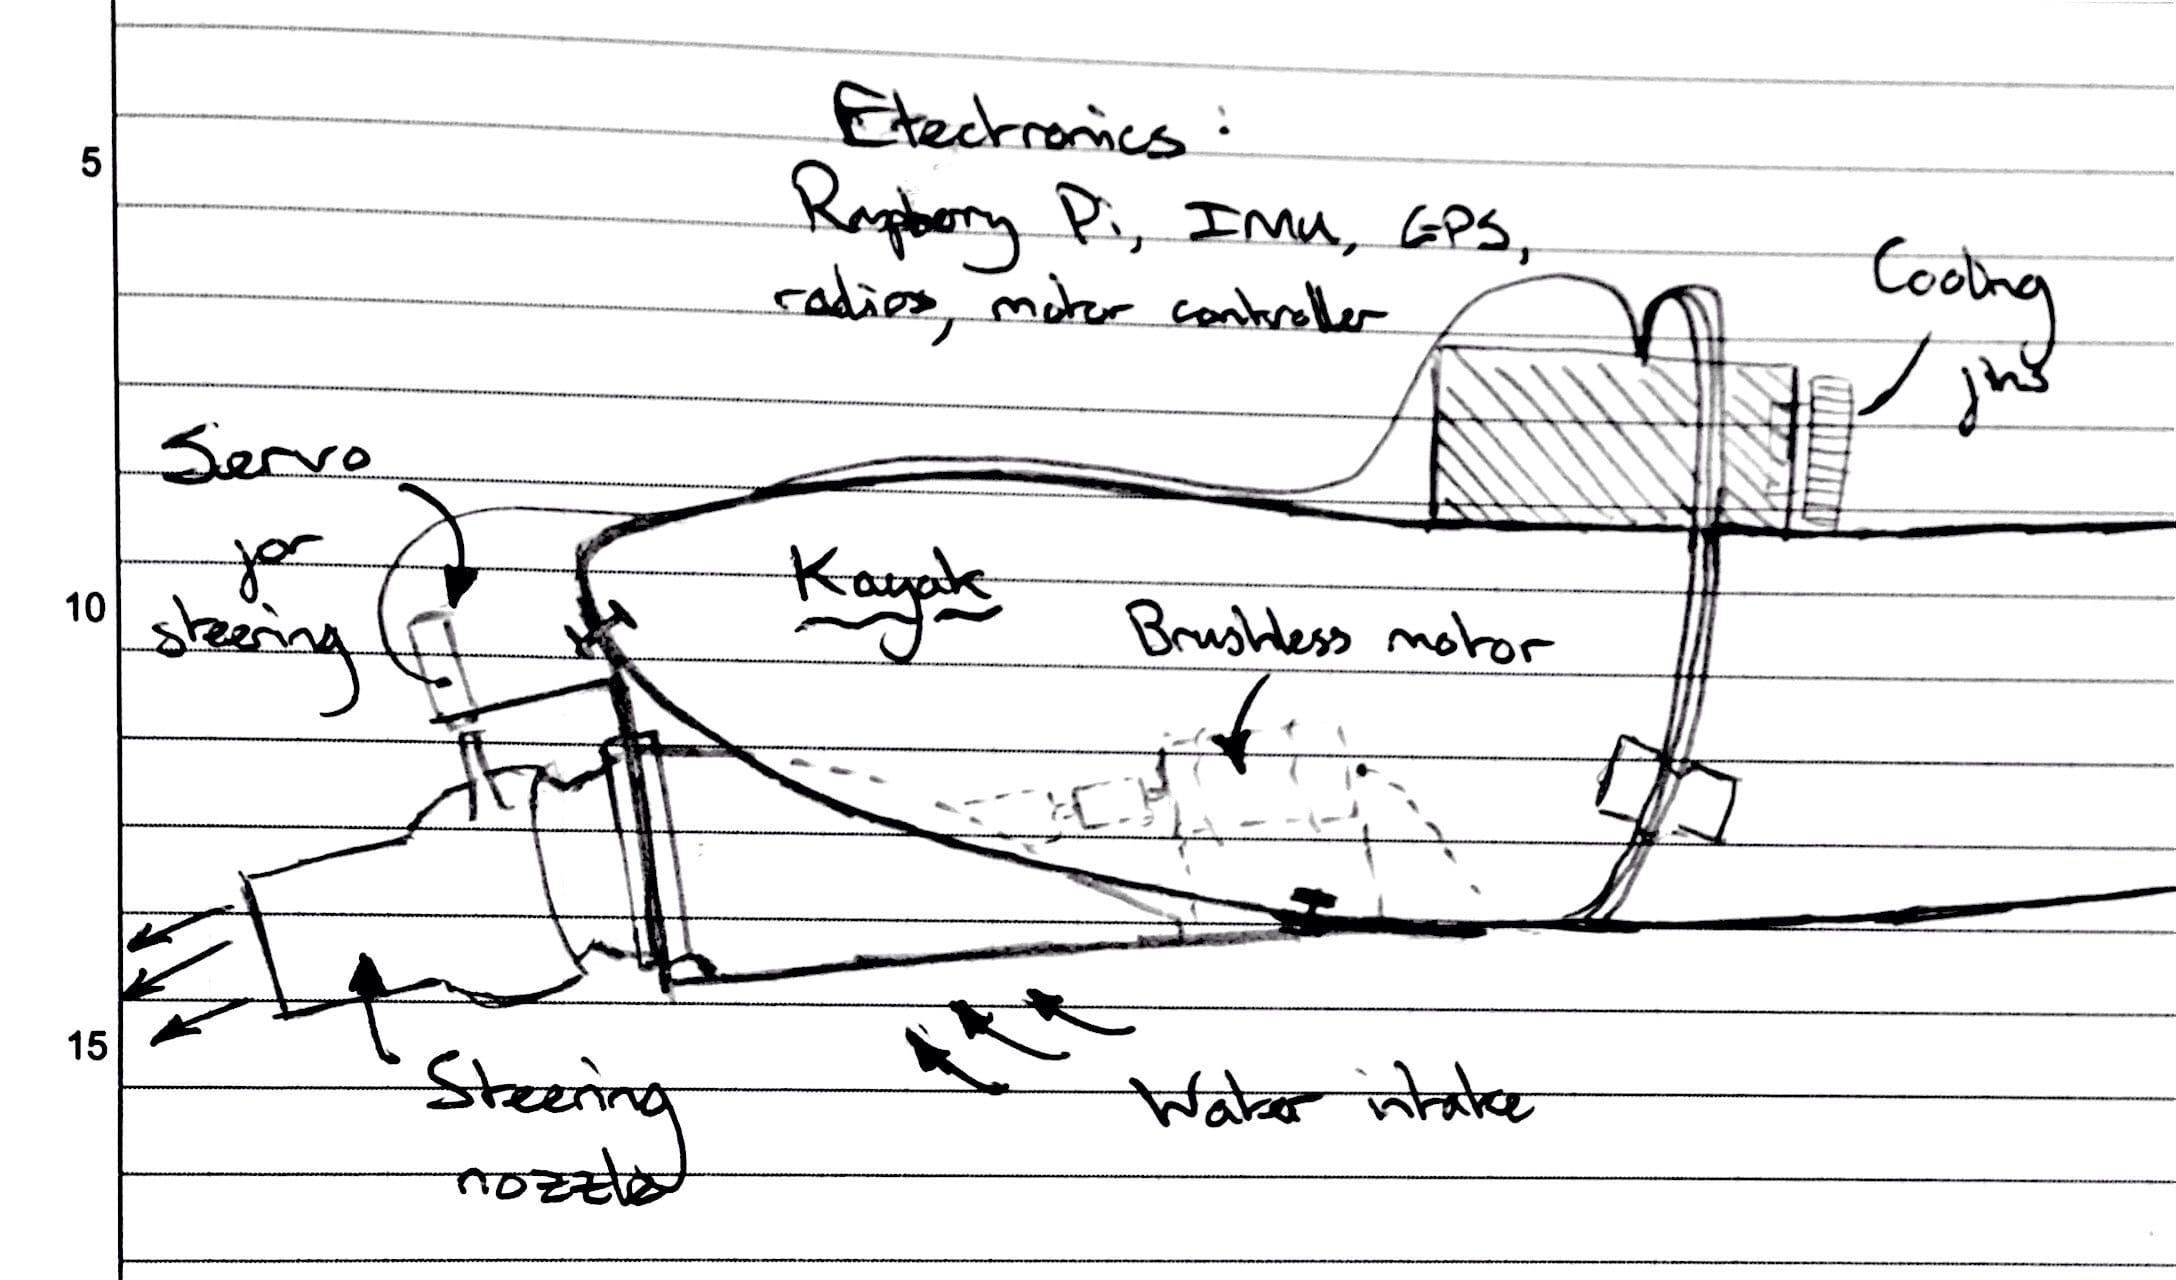 Electronics:
Raspberry Pi, IMU, GPS,
radios, motor controller
Cooling
fins
5
Servo
for
steering
Kayak
10
Brushless motor
15
Steering
nozzle
Water intake